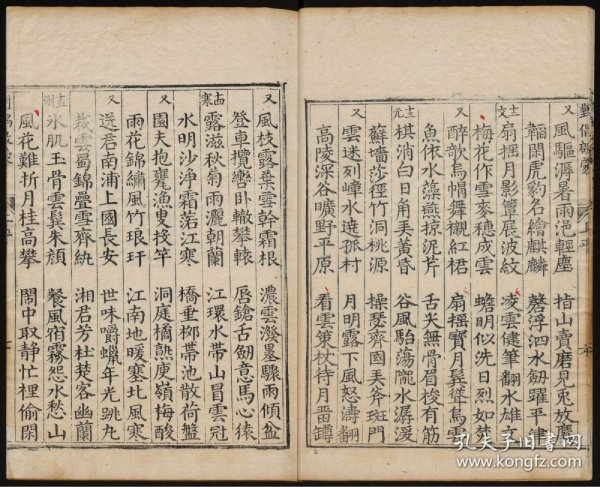 又 風驅溽暑雨浥輕塵 指山賣磨見兎放鷹
韜閑虎豹名繪麒麟 磬浮泗水劔躍平津
十二文 扇揺月影簟展波紋 凌雲健筆翻水雄文
梅花作雪麥穗成雲 蟾明似洗日烈如焚
又 醉歌烏帽舞襯紅裙 扇搖寳月髮墮烏雲
魚依水藻燕掠泥芹 舌無骨眉梭有筋
十三元 棋消白日角美黄昏 谷風駘蕩隴水潺湲
蘇墻莎徑竹洞桃源 操瑟齊國弄斧班門
又 雲迷列嶂水遶孤村 月明露下風怒濤翻
高陵深谷曠野平原 看雲策杖待月罍罇
又 風枝露葉雲幹霜根 濃雲潑墨驟雨傾盆
登車攬轡卧轍攀轅 唇鎗舌劔意馬心猿
十四寒 露滋秋菊雨灑朝蘭 江環水帶山冒雲冠
水明沙淨霜若江寒 橋垂柳帶池散荷盤
又 園夫抱甕漁叟投竿 洞庭橘熟庾嶺梅酸
雨花錦繡風竹琅玕 江南地暖塞北風寒
又 送君南浦上國長安 世味嚼蠟年光跳丸
裁雲蜀錦疊雪齊紈 湘君芳杜楚客幽蘭
十五刪 氷肌玉骨雲鬢朱顔 餐風宿霧怨水愁山
風花難折月桂高攀 閙中取静忙裡偷閑
孔夫子旧书网
www.kongfz.com